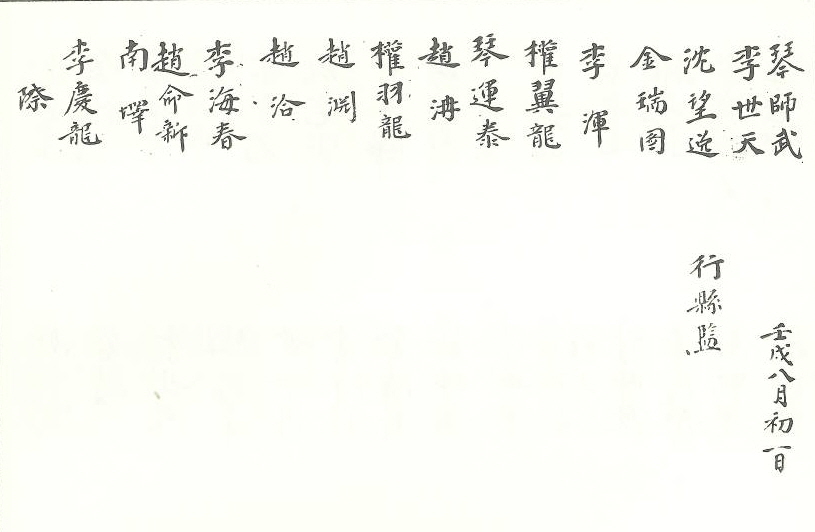 琴師武
李世天
沈望逆
金瑞圖
李渾
權翼龍
琴運泰
趙
權羽龍
趙渕
趙洽
李海春
趙命新
南墿
李慶龍
際
壬戌八月初一日
行縣監